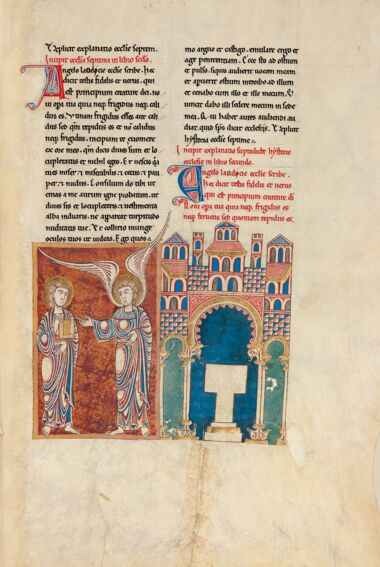 Explicit explanatio ecclie septem.
Incipit ecclia septima in libro sedo.
Angelo laodocie ecclie scribe. hec
dicit testis fidelis et uerus. qui
est principium creature dei. no
ui opa tua quia neq; frigidus neq; cali
dus es. Utinam frigidus esses aut cali
dus sed qm tepidus es et nec calidus
nec frigidus. incipiam te euomere
ex ore meo. qm dicis diues sum et lo
cupletatus et nichil egeo. Et nescis qa
tu es miser et miserabilis et cecus et pau
per et nudus. Consilium do tibi ut
emas a me aurum igne probatum. ut
diuis sis et locupletatus et uestimenta
alba induaris. ne appareat turpitudo
nuditatis tue. Et collirio inunge
oculos tuos ut uideas. Ego quos a
mo arguo et castigo. emulare ergo et
age penitentiam. Ecce sto ad ostium
et pulso. siquis audierit uocem meam
et aperuerit ostium introibo ad illum
et cenabo cum illo et ille mecum. Qui
uincet dabo illi sedere mecum in sede
mea. Qui habet aures audiendi au
diat. quid sps dicat ecclesiis. Explicit
hystoria ecclie septime.
Incipit explanatio supradicte hystorie
ecclesie in libro secundo.
Angelo laodocie ecclie scribe.
Hec dicit testis fidelis et uerus
qui est principium creature di
Noui opa tua quia neq; frigidus es
neq; feruens sed quoniam tepidus es.